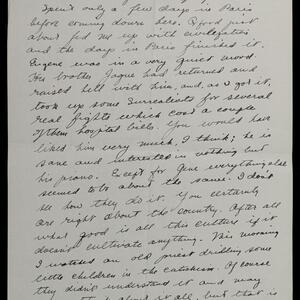 Spent only a few days in Paris
before coming down here. Oxford just
about fed me up with civilization
and the days in Paris finished it.
Eugene was in a very quiet mood.
His brother Jaque had returned and
raised hell with him, and, as I got it,
took up some Surrealists for several
real fights which cost a couple
of them hospital bills. You would have
liked him very much, I think; he is
sane and interested in nothing but
his piano. Except for Gene everything else
seemed to be about the same. I don't
see how they do it. You certainly
are right about the country. After all
what good is all this culture if it
doesn't cultivate anything. This morning
I watched an old priest drilling some
little children in the catechism. Of course
they didn't understand it and may
about it all, but that is